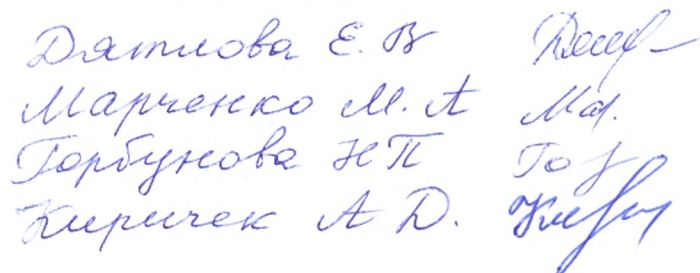 Дятлова Е. В
Марченко М. А Ма.
Горбунова Н П
Киричек А Д.